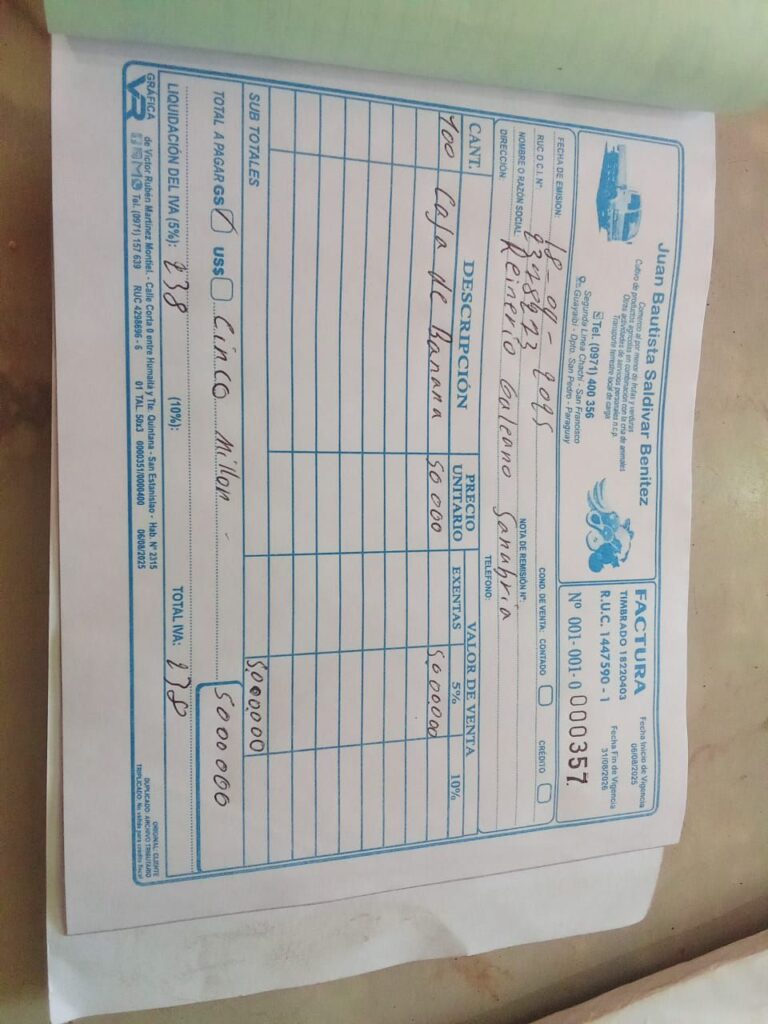 Juan Bautista Saldivar Benitez
Comercio al por menor de frutas y verduras
Cultivo de productos agrícolas en combinación con la cria de animales
Otras actividades de servicios personales n.c.p.
Transporte terrestre local de carga
Tel. (0971) 400 356
Segunda Linea Chachi - San Francisco
Guayaibi - Dpto. San Pedro - Paraguay
FACTURA
TIMBRADO 18220403
R.U.C. 1447590 - 1
Fecha Inicio de Vigencia
06/08/2025
Fecha Fin de Vigencia
31/08/2026
Nº 001- 001- 0 000357
FECHA DE EMISION: 18 - 09 - 2025
COND. DE VENTA: CONTADO CRÉDITO
RUC O C.I. N°:
NOMBRE O RAZÓN SOCIAL: Reinerio Galeano Sanabria
NOTA DE REMISIÓN N°:
DIRECCIÓN:
TELÉFONO:
CANT. DESCRIPCIÓN PRECIO UNITARIO VALOR DE VENTA
EXENTAS 5% 10%
100 Caja de Banana 50 000 5.000.000
SUB TOTALES 5.000.000
TOTAL A PAGAR GS US$ Cinco Millon - 5000000
LIQUIDACIÓN DEL IVA (5%): 238 (10%): TOTAL IVA: 238
GRÁFICA VR
de Victor Rubén Martínez Montiel. - Calle Corta 0 entre Humaita y Tte. Quintana - San Estanislao - Hab. N° 2315
Tel. (0971) 157 639 RUC 4298696 - 6 01 TAL. 50x3 0000351/0000400 06/08/2025
ORIGINAL: CLIENTE
DUPLICADO: ARCHIVO TRIBUTARIO
TRIPLICADO: No válido para crédito fiscal